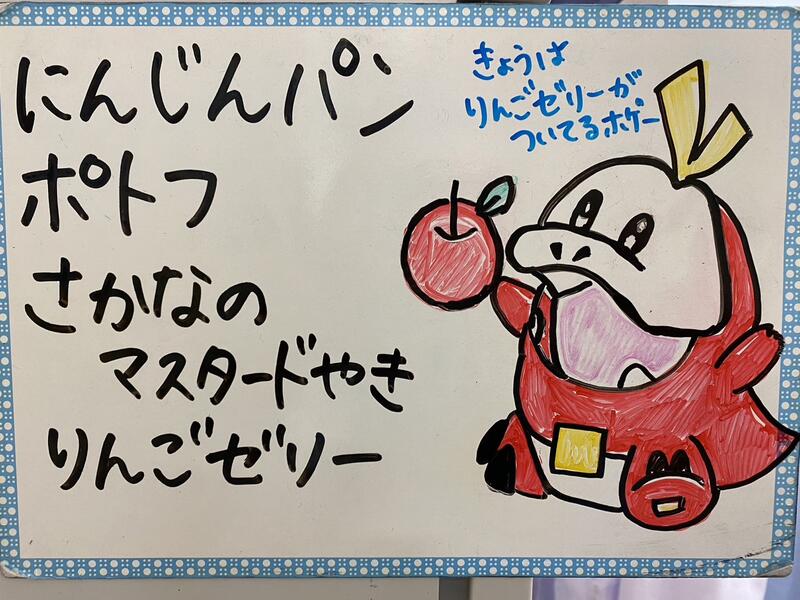 にんじんパン
ポトフ
さかなの
マスタードやき
りんごゼリー
きょうは
りんごゼリーが
ついてるホゲー